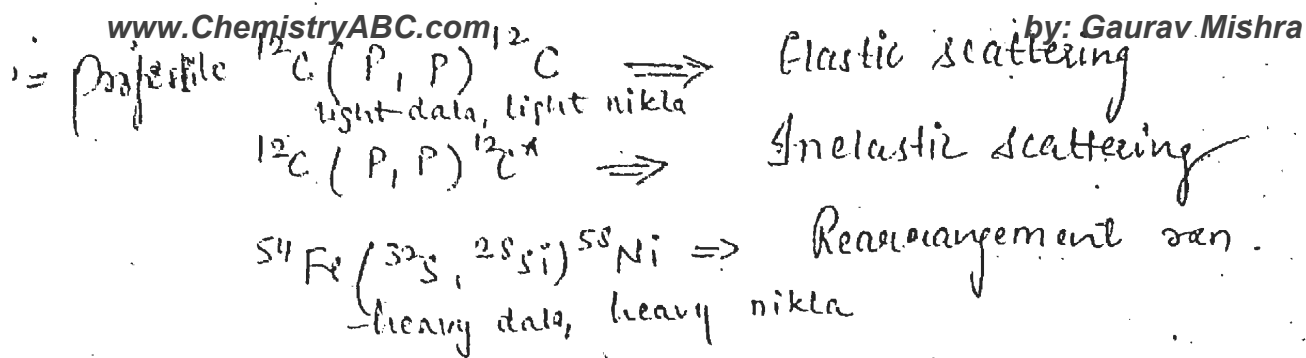 www.ChemistryABC.com by: Gaurav Mishra
projectile ¹²C (P, P) ¹²C ⇒ Elastic scattering
light dala, light nikla
¹²C (P, P) ¹²C* ⇒ Inelastic scattering
⁵⁴Fe (³²S, ²⁸Si) ⁵⁸Ni ⇒ Rearrangement rxn.
heavy dala, heavy nikla